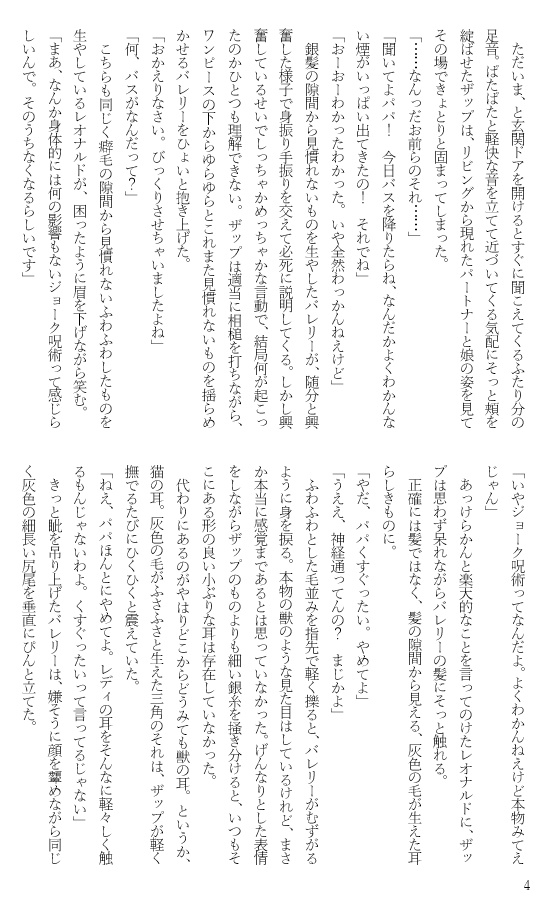 ただいま、と玄関ドアを開けるとすぐに聞こえてくるふたり分の
足音。ぱたぱたと軽快な音を立てて近づいてくる気配にそっと頬を
綻ばせたザップは、リビングから現れたパートナーと娘の姿を見て
その場できょとりと固まってしまった。
「……なんだお前らのそれ……」
「聞いてよパパ！　今日バスを降りたらね、なんだかよくわかんな
い煙がいっぱい出てきたの！　それでね」
「おーおーわかったわかった。いや全然わっかんねえけど」
銀髪の隙間から見慣れないものを生やしたバレリーが、随分と興
奮した様子で身振り手振りを交えて必死に説明してくる。しかし興
奮しているせいでしっちゃかめっちゃかな言動で、結局何が起こっ
たのかひとつも理解できない。ザップは適当に相槌を打ちながら、
ワンピースの下からゆらゆらとこれまた見慣れないものを揺らめ
かせるバレリーをひょいと抱き上げた。
「おかえりなさい。びっくりさせちゃいましたよね」
「何、バスがなんだって？」
こちらも同じく癖毛の隙間から見慣れないふわふわしたものを
生やしているレオナルドが、困ったように眉を下げながら笑む。
「まあ、なんか身体的には何の影響もないジョーク呪術って感じら
しいんで。そのうちなくなるらしいです」
「いやジョーク呪術ってなんだよ。よくわかんねえけど本物みてえ
じゃん」
あっけらかんと楽天的なことを言ってのけたレオナルドに、ザッ
プは思わず呆れながらバレリーの髪にそっと触れる。
正確には髪ではなく、髪の隙間から見える、灰色の毛が生えた耳
らしきものに。
「やだ、パパくすぐったい。やめてよ」
「うええ、神経通ってんの？　まじかよ」
ふわふわとした毛並みを指先で軽く擽ると、バレリーがむずがる
ように身を捩る。本物の獣のような見た目はしているけれど、まさ
か本当に感覚まであるとは思っていなかった。げんなりとした表情
をしながらザップのものよりも細い銀糸を掻き分けると、いつもそ
こにある形の良い小ぶりな耳は存在していなかった。
代わりにあるのがやはりどこからどうみても獣の耳。というか、
猫の耳。灰色の毛がふさふさと生えた三角のそれは、ザップが軽く
撫でるたびにひくひくと震えていた。
「ねえ、パパほんとにやめてよ。レディの耳をそんなに軽々しく触
るもんじゃないわよ。くすぐったいって言ってるじゃない」
きっと眦を吊り上げたバレリーは、嫌そうに顔を顰めながら同じ
く灰色の細長い尻尾を垂直にぴんと立てた。
4